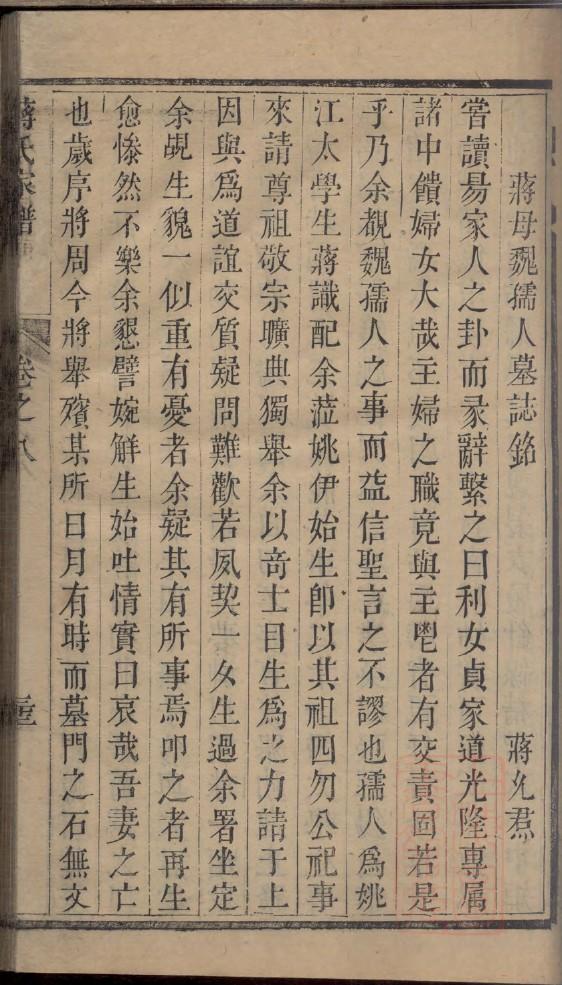 蔣母魏孺人墓誌銘
蔣允焄
嘗讀易家人之卦而彖辭繫之曰利女貞家道光隆專属
諸中饋婦女大哉主婦之職竟與主鬯者有交責固若是
乎乃余覩魏孺人之事而益信聖言之不謬也孺人爲姚
江太學生蔣識配余蒞姚伊始生卽以其祖四勿公祀事
來請尊祖敬宗曠典獨舉余以竒士目生爲之力請于上
因與爲道誼交質疑問難歡若夙契一夊生過余署坐定
余覘生貌一似重有憂者余疑其有所事焉叩之者再生
愈慘然不樂余懇譬婉觧生始吐情實曰哀哉吾妻之亡
也歲序將周今將舉殯某所日月有時而墓門之石無文
蔣氏家譜
卷之八